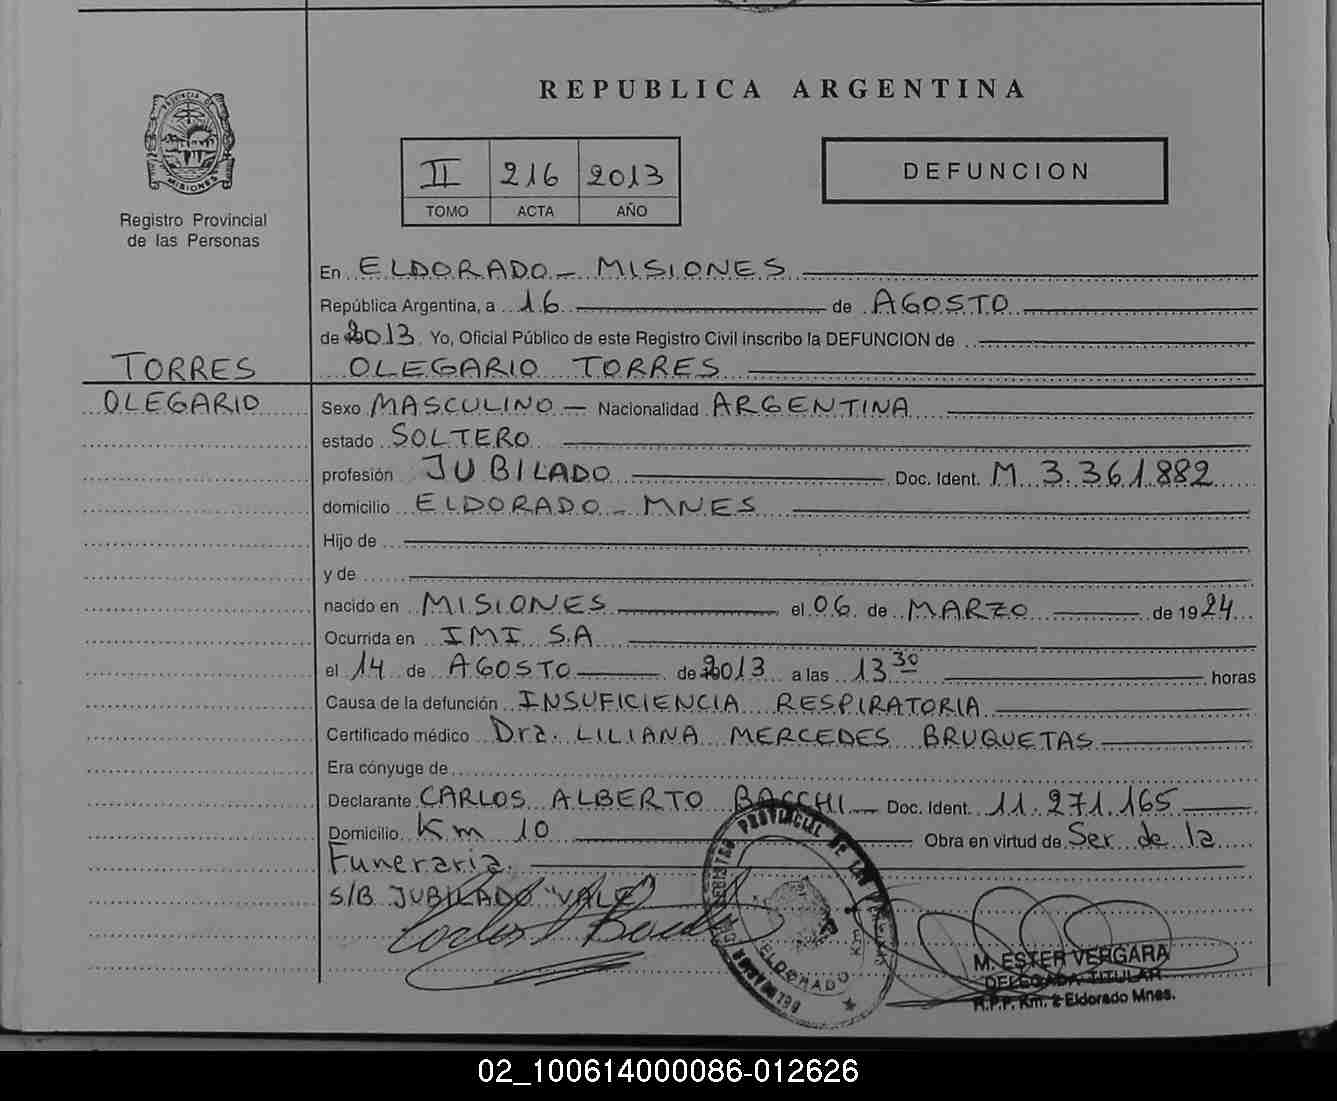 REPUBLICA ARGENTINA
PROVINCIA DE
MISIONES
Registro Provincial
de las Personas
II 216 2013
TOMO ACTA AÑO
DEFUNCION
En ELDORADO - MISIONES
República Argentina, a 16 de AGOSTO
de 2013. Yo, Oficial Público de este Registro Civil inscribo la DEFUNCION de
TORRES OLEGARIO TORRES
OLEGARIO Sexo MASCULINO - Nacionalidad ARGENTINA
estado SOLTERO
profesión JUBILADO Doc. Ident. M 3.361.882
domicilio ELDORADO - MNES
Hijo de
y de
nacido en MISIONES el 06 de MARZO de 1924
Ocurrida en IMI S.A
el 14 de AGOSTO de 2013 a las 13 30 horas
Causa de la defunción INSUFICIENCIA RESPIRATORIA
Certificado médico Dra. LILIANA MERCEDES BRUQUETAS
Era cónyuge de
Declarante CARLOS ALBERTO BACCHI Doc. Ident. 11.271.165
Domicilio Km 10 Obra en virtud de Ser de la
Funeraria.
S/B JUBILADO "VALE"
REGISTRO PROVINCIAL DE LAS PERSONAS
ELDORADO
M. ESTER VERGARA
DELEGADA TITULAR
R.P.P. Km. 2 Eldorado Mnes.
02_100614000086-012626